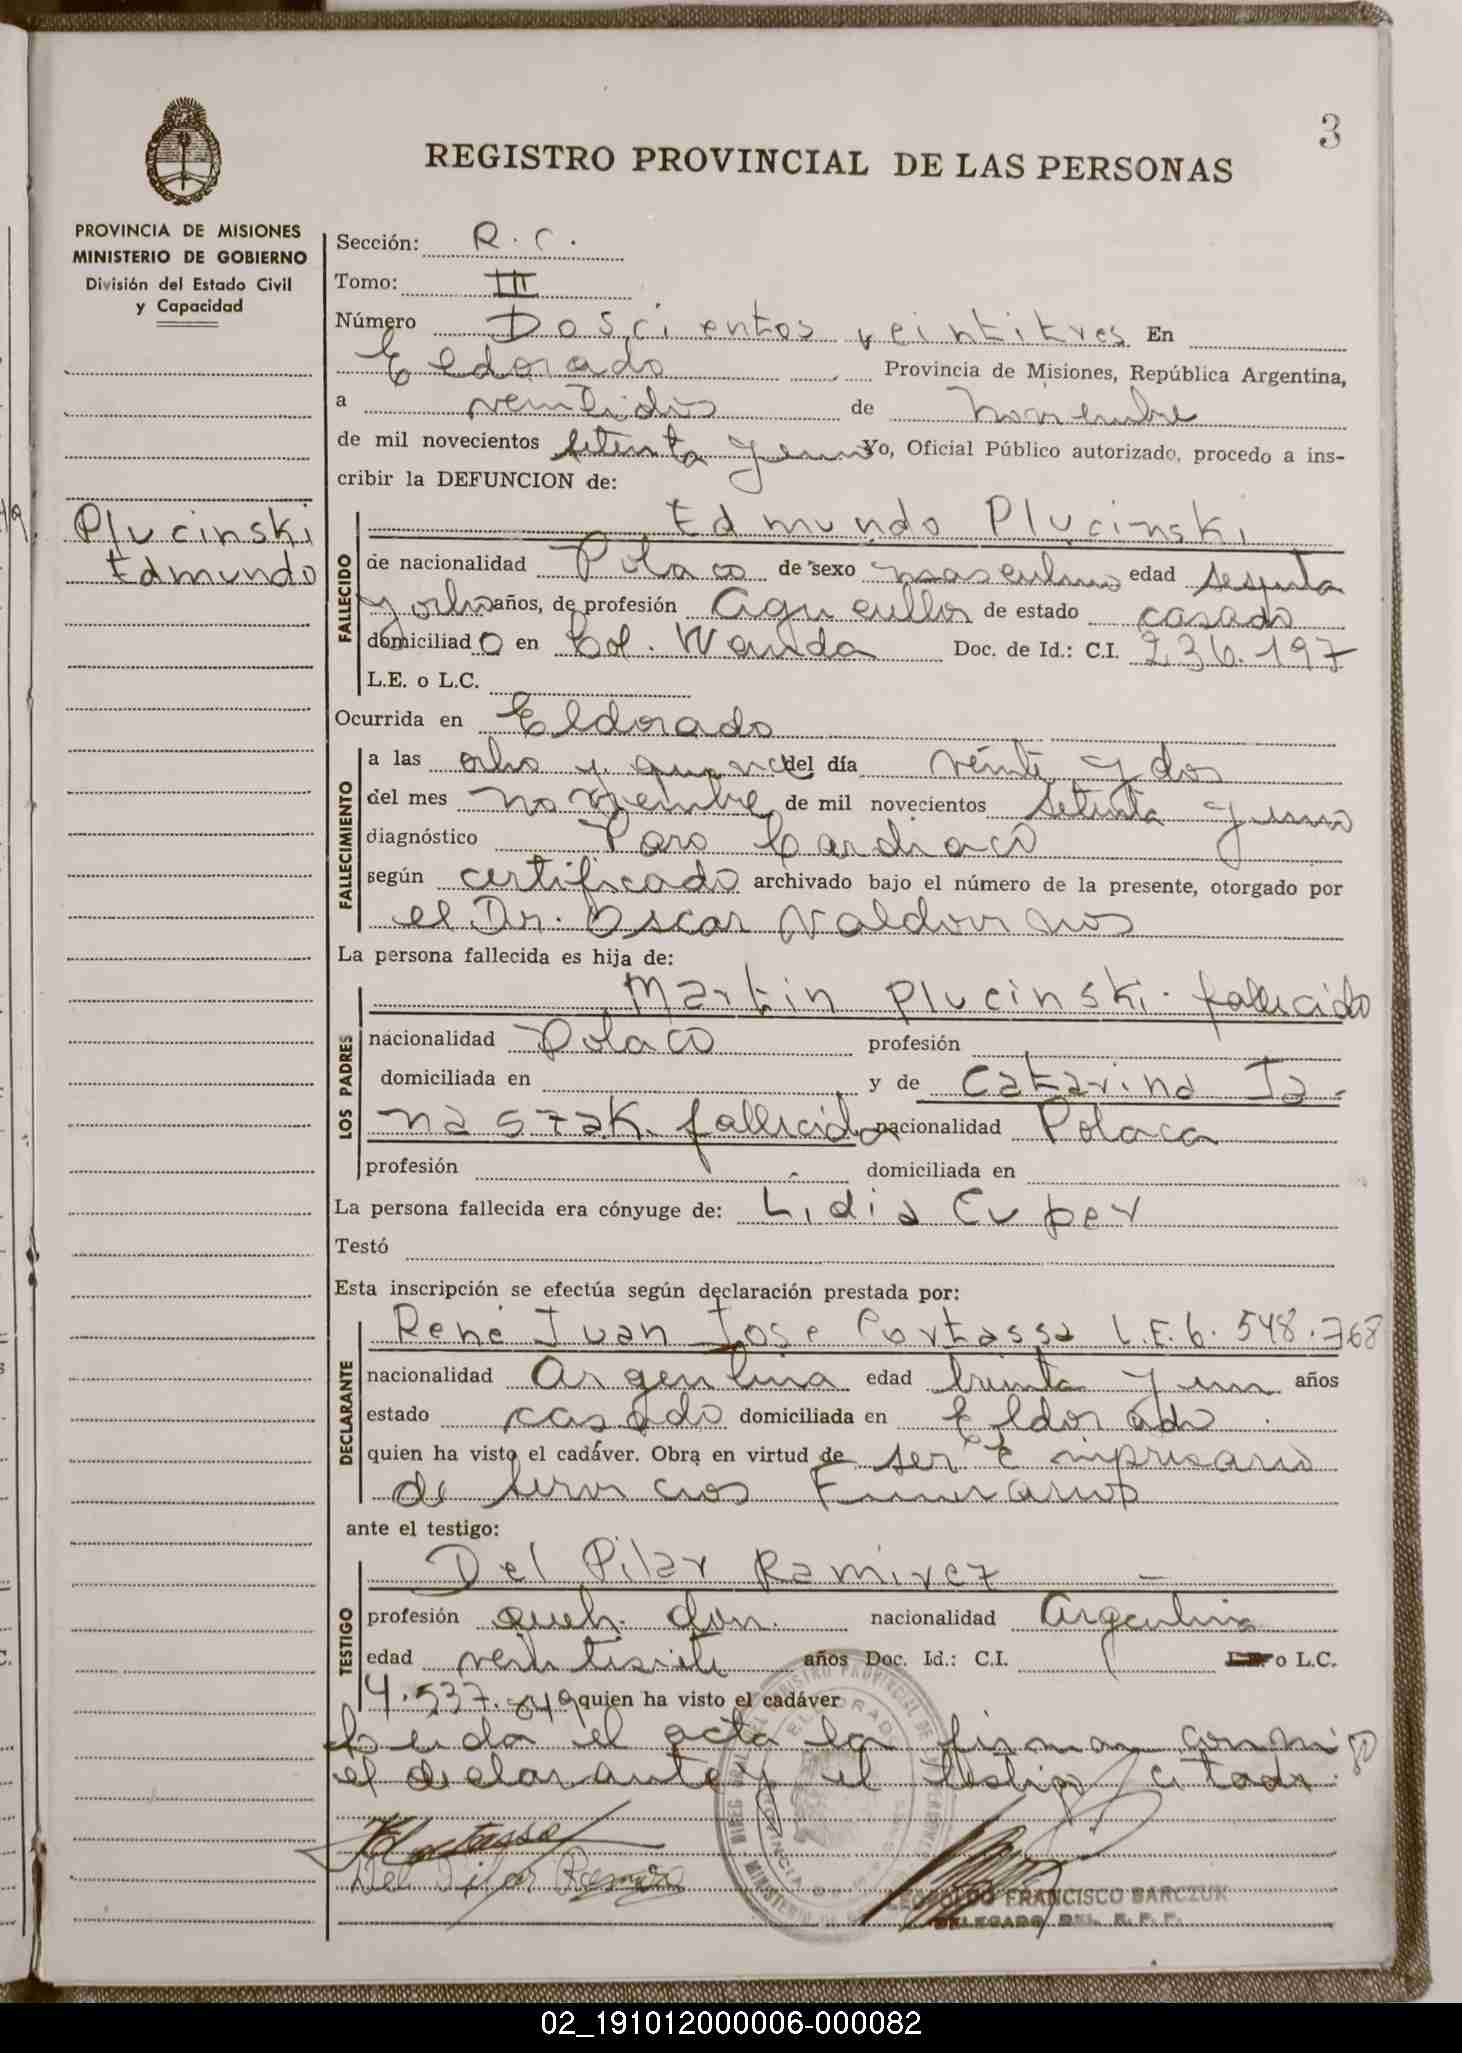 3
REGISTRO PROVINCIAL DE LAS PERSONAS
PROVINCIA DE MISIONES
MINISTERIO DE GOBIERNO
División del Estado Civil
y Capacidad
Plucinski
Edmundo
Sección: R. C.
Tomo: III
Número Doscientos veintitres En
Eldorado Provincia de Misiones, República Argentina,
a veintidos de noviembre
de mil novecientos setenta y uno Yo, Oficial Público autorizado, procedo a ins-
cribir la DEFUNCION de:
FALLECIDO
Edmundo Plucinski
de nacionalidad Polaco de sexo masculino edad sesenta
y ocho años, de profesión Agricultor de estado casado
domiciliado en Col. Wanda Doc. de Id.: C.I. 236.197
L.E. o L.C.
Ocurrida en Eldorado
FALLECIMIENTO
a las ocho y quince del día veinte y dos
del mes noviembre de mil novecientos setenta y uno
diagnóstico Paro Cardiaco
según certificado archivado bajo el número de la presente, otorgado por
el Dr. Oscar Valdovinos
La persona fallecida es hija de:
LOS PADRES
Martin Plucinski. fallecido
nacionalidad Polaco profesión
domiciliada en y de Catarina Ja-
naszak. fallecida nacionalidad Polaca
profesión domiciliada en
La persona fallecida era cónyuge de: Lidia Cuper
Testó
Esta inscripción se efectúa según declaración prestada por:
DECLARANTE
René Juan Jose Cortassa L.E. 6.548.768
nacionalidad Argentina edad treinta y un años
estado casado domiciliada en Eldorado.
quien ha visto el cadáver. Obra en virtud de ser Empresario
de Servicios Funerarios
ante el testigo:
TESTIGO
Del Pilar Ramirez
profesión queh. dom. nacionalidad Argentina
edad veintisiete años Doc. Id.: C.I. o L.C.
4.537.849 quien ha visto el cadáver
Leida el acta la firman conmigo
el declarante y el testigo citado.
Cortassa
Del Pilar Ramirez
LEOPOLDO FRANCISCO BARCZUK
DELEGADO DEL R. P. P.
02_191012000006-000082